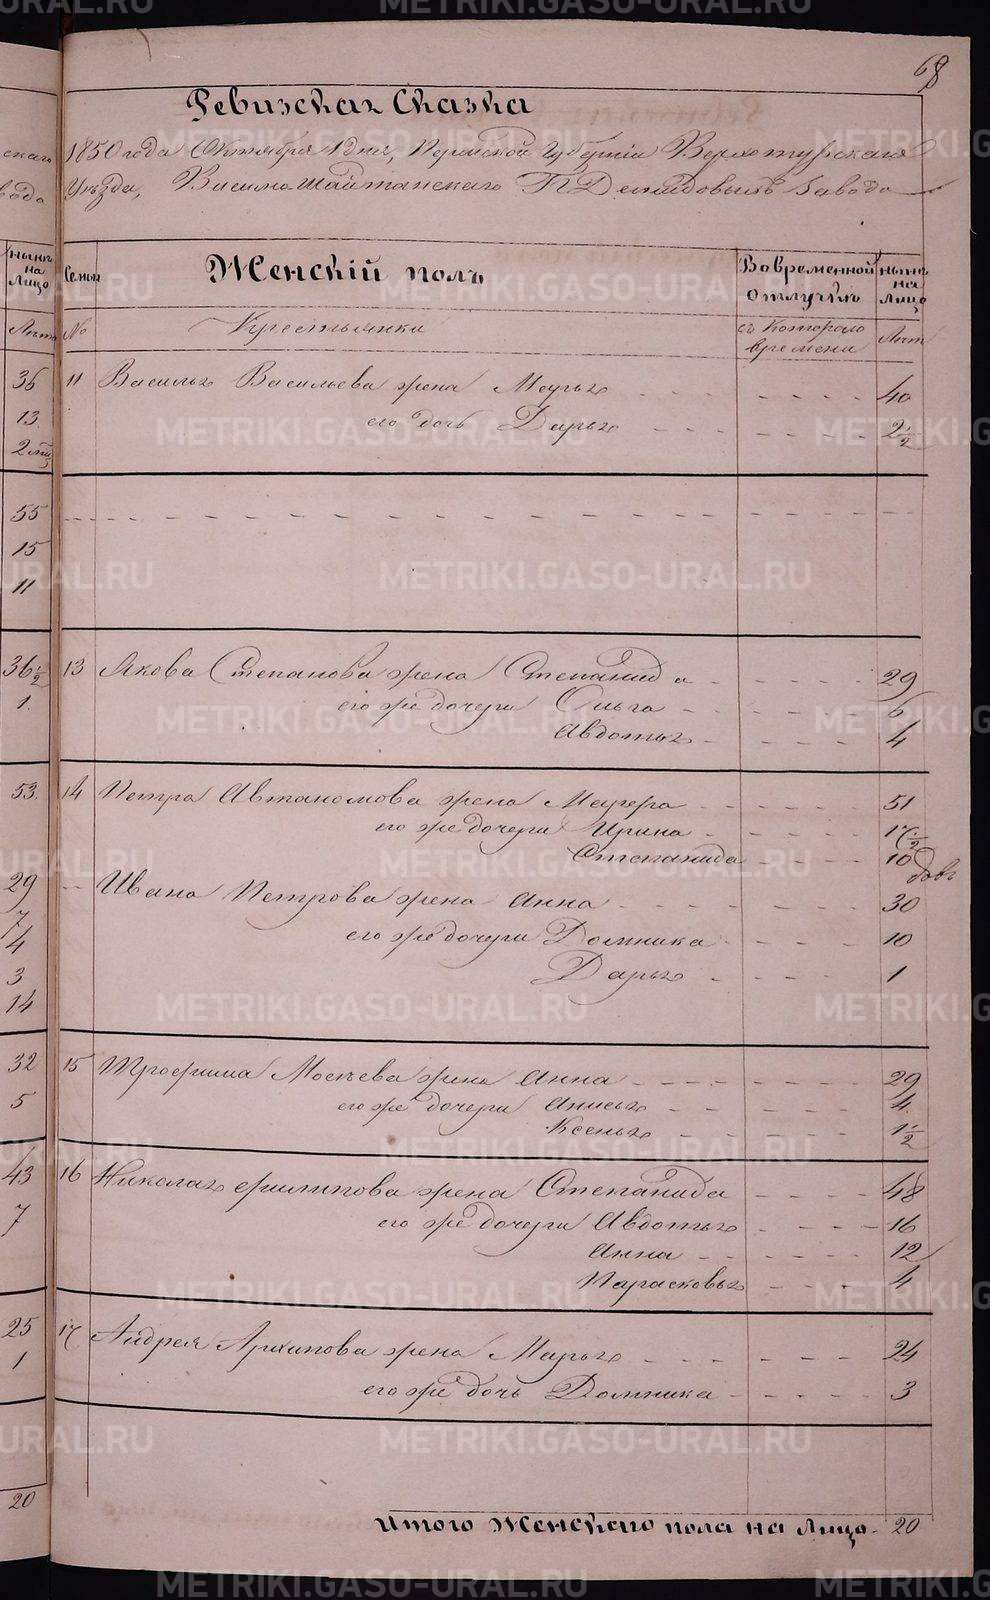 68
Ревизская Сказка
1850 года Октября 1 дня, Пермской Губернiи Верхотурскаго
Уѣзда, Висимошайтанскаго П Демидовыхъ Завода
Семьи
Женскiй полъ
Вовременной отлучкѣ
нынѣ на Лицо
№
Крестьянки
съ Котораго времени
Лѣт
11 Василья Васильева жена Марья 40
его дочь Дарья 2 1/2
13 Якова Степанова жена Степанида 29
его же дочери Ольга 6
Авдотья 4
14 Петра Автаномова жена 51
его же дочери Ирина 17 1/2
Степанида 10
Ивана Петрова жена Анна 30
его же дочери Домника 10
Дарья 1
15 Трофима Мосѣева жена Анна 29
его же дочери Анисья 4
Ксенья 1 1/2
16 Николая Филипова жена Степанида 48
его же дочери Авдотья 16
Анна 12
Парасковья 4
17 Андрея Архипова жена Марья 24
его же дочь Домника 3
Итого Женскаго пола на Лицо 20
скаго
вода
нынѣ
на
Лицо
Лѣт
36
13
2
55
15
11
36 1/2
1
53
29
7
4
3
14
32
5
43
7
25
1
20
METRIKI.GASO-URAL.RU